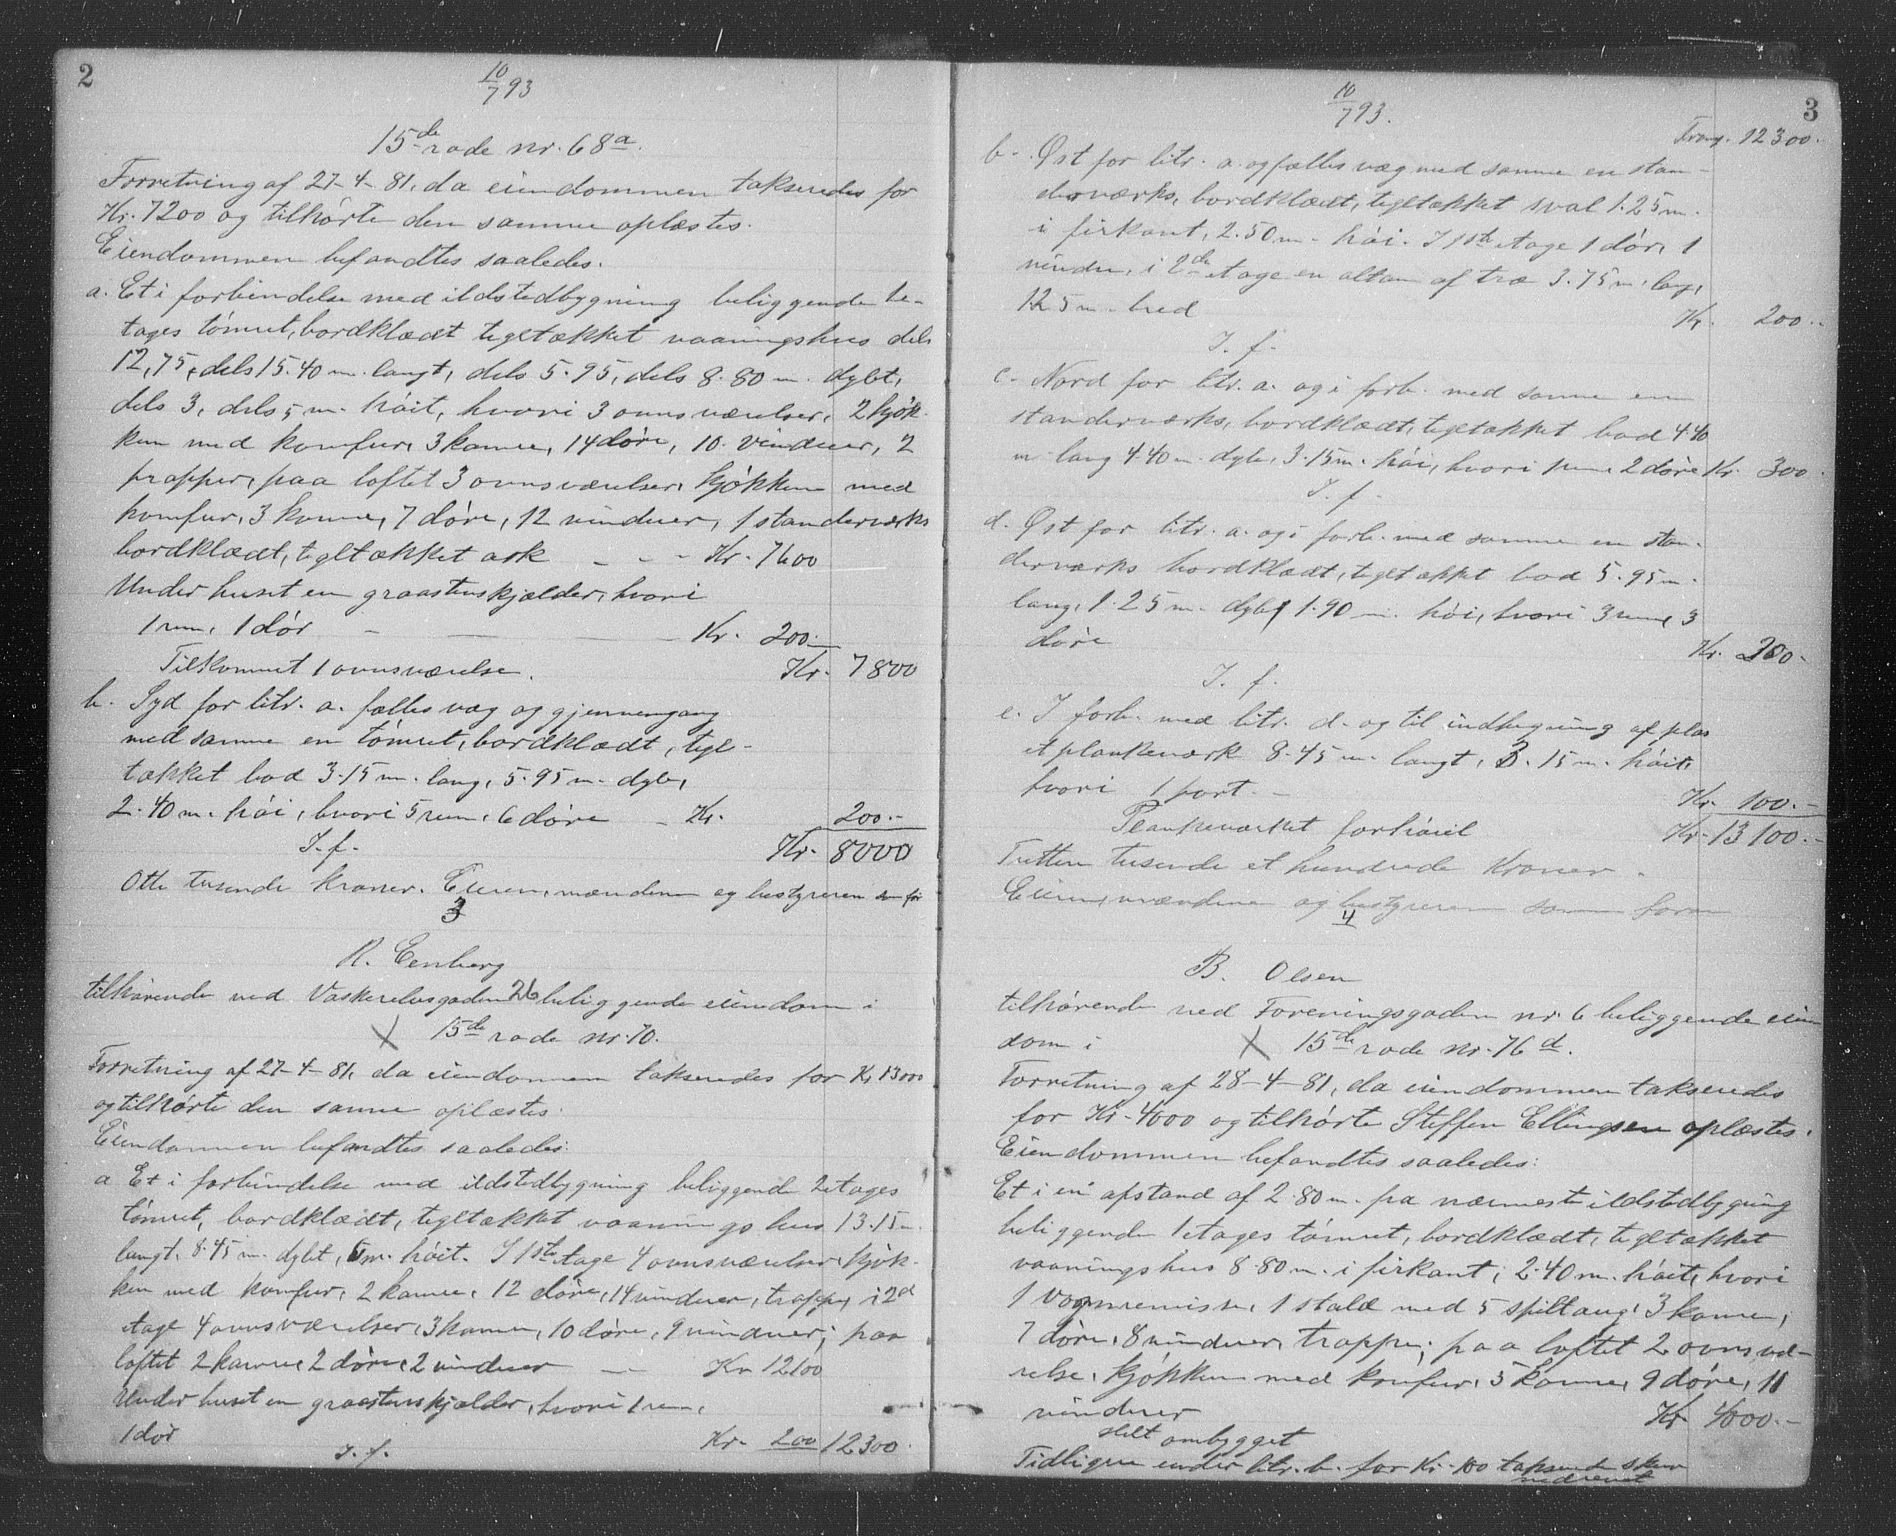 2
10/7 93
15de rode nr. 68a.
Forretning af 27-4-81, da eiendommen takseredes for
Kr. 7200 og tilhørte den samme oplæstes.
Eiendommen befandtes saaledes.
a. Et i forbindelse med ildstedbygning beliggende 1e-
tages tømret, bordklædt tegltækket vaaningshus dels
12,75, dels 15.40 m. langt, dels 5.95, dels 8.80 m. dybt,
dels 3, dels 5 m. høit, hvori 3 ovnsværelser, 2 kjøk-
ken med komfur, 3 kamre, 14 døre, 10 vinduer, 2
trapper, paa loftet 3 ovnsværelser, kjøkken med
komfur, 3 kamre, 7 døre, 12 vinduer, 1 standerværks
bordklædt, tegltækket ark - - - Kr. 7600
Under huset en graastenskjælder, hvori
1 rum, 1 dør - - - Kr. 200.-
Tilkommet 1 ovnsværelse. Kr. 7800
b. Syd for litr. a. fælles væg og gjennemgang
med samme en tømret, bordklædt, tegl-
tækket bod 3.15 m. lang, 5.95 m. dyb,
2.40 m. høi, hvori 5 rum, 6 døre - Kr. 200.-
S. f. Kr. 8000
Otte tusende kroner. Eieren, mændene og bestyreren som før
3
R. Eenberg
tilhørende ved Vaskerelvsgaden 26 beliggende eiendom i
X 15de rode nr. 70.
Forretning af 27-4-81, da eiendommen takseredes for Kr 13000
og tilhørte den samme oplæstes.
Eiendommen befandtes saaledes:
a Et i forbindelse med ildstedbygning beliggende 2etages
tømret, bordklædt, tegltækket vaaningshus 13.15 m.
langt, 8.45 m. dybt, 5 m. høit. I 1ste etage 4 ovnsværelser, kjøk-
ken med komfur, 2 kamre, 12 døre, 14 vinduer, trappe, i 2d
etage 4 ovnsværelser, 3 kamre, 10 døre, 9 vinduer; paa
loftet 2 kamre, 2 døre, 2 vinduer - Kr 12100
Under huset en graastenskjælder, hvori 1 rum,
1 dør Kr. 200 12300.
S. f.
3
10/7 93.
Transp. 12300.-
b. Øst for litr. a. og fælles væg med samme en stan-
derværks, bordklædt, tegltækket sval 1.25 m.
i firkant, 2.50 m. høi. I 1ste etage 1 dør, 1
vindu, i 2de etage en altan af træ 3.75 m. lang,
1.25 m. bred Kr. 200.-
S. f.
c. Nord for litr. a. og i forb. med samme en
standerværks, bordklædt, tegltækket bod 4.40
m. lang 4.40 m. dyb, 3.15 m. høi, hvori 1 rum, 2 døre Kr. 300.
S. f.
d. Øst for litr. a. og i forb. med samme en stan-
derværks bordklædt, tegltækket bod 5.95 m.
lang, 1.25 m. dyb, 1.90 m. høi, hvori 3 rum, 3
døre Kr. 200.-
S. f.
e. I forb. med litr. d. og til indhegning af plas
et plankeværk 8.45 m. langt, 3.15 m. høit,
hvori 1 port. - Kr. 100.-
Plankeværket forhøiet Kr. 13100.-
Tretten tusende et hundrede Kroner.
Eieren, mændene og bestyreren som foran
4
B. Olsen
tilhørende ved Foreningsgaden nr. 6 beliggende eien
dom i X 15de rode nr. 76d.
Forretning af 28-4-81, da eiendommen takseredes
for Kr. 4000 og tilhørte Steffen Ellingsen oplæstes.
Eiendommen befandtes saaledes:
Et i en afstand af 2.80 m. fra nærmeste ildstedbygning
beliggende 1etages tømret, bordklædt, tegltækket
vaaningshus 8.80 m. i firkant, 2.40 m. høit, hvori
1 vognremisse, 1 stald med 5 spiltaug, 3 kamre,
7 døre, 8 vinduer, trappe; paa loftet 2 ovnsvæ-
relse, kjøkken med komfur, 5 kamre, 9 døre, 11
vinduer Kr. 4000.-
slet ombygget
Tidligere under litr. b. for Kr. 100 takserede skur
nedrevet